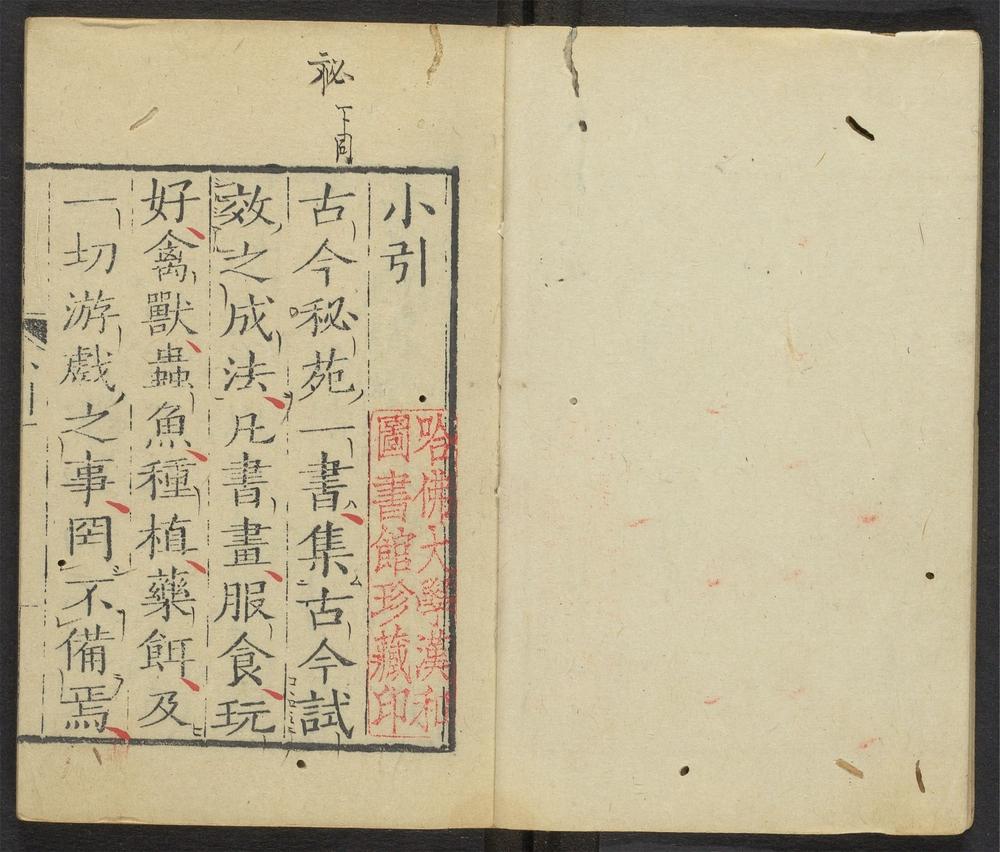 祕
下同
小引
古今秘苑一書集古今試
效之成法凡書畫服食玩
好禽獸蟲魚種植藥餌及
一切游戲之事罔不備焉
哈佛大學漢和
圖書館珍藏印